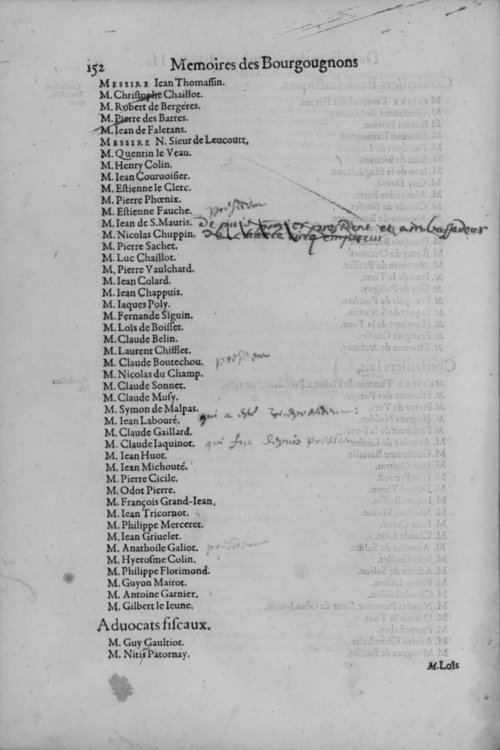 152 Memoires des Bourgougnons
MESSIRE Iean Thomassin.
M. Christophe Chaillot.
M. Robert de Bergeres.
M. Pierre des Barres.
M. Iean de Faletans.
MESSIRE N. Sieur de Leucourt.
M. Quentin le Veau.
M. Henry Colin.
M. Iean Couruoisier.
M. Estienne le Clerc.
M. Pierre Phœnix.
M. Estienne Fauche. president
M. Iean de S. Mauris. depuis president et ambassadeur
M. Nicolas Chuppin. de empereur
M. Pierre Sachet.
M. Luc Chaillot.
M. Pierre Vaulchard.
M. Iean Colard.
M. Iean Chappuis.
M. Iaques Poly.
M. Fernande Siguin.
M. Loïs de Boisset.
M. Claude Belin.
M. Laurent Chifflet.
M. Claude Boutechou. president
M. Nicolas du Champ.
M. Claude Sonnet.
M. Claude Musy.
M. Symon de Malpas. qui a été
M. Iean Labouré.
M. Claude Gaillard.
M. Claude Iaquinot. qui fut depuis president
M. Iean Huot.
M. Iean Michouté.
M. Pierre Cicile.
M. Odot Pierre.
M. François Grand-Iean.
M. Iean Tricornot.
M. Philippe Merceret.
M. Iean Griuelet.
M. Anathoile Galiot. president
M. Hyerosme Colin.
M. Philippe Florimond.
M. Guyon Mairot.
M. Antoine Garnier.
M. Gilbert le Ieune.
Aduocats fiscaux.
M. Guy Gaultiot.
M. Nitis Patornay.
M. Loïs